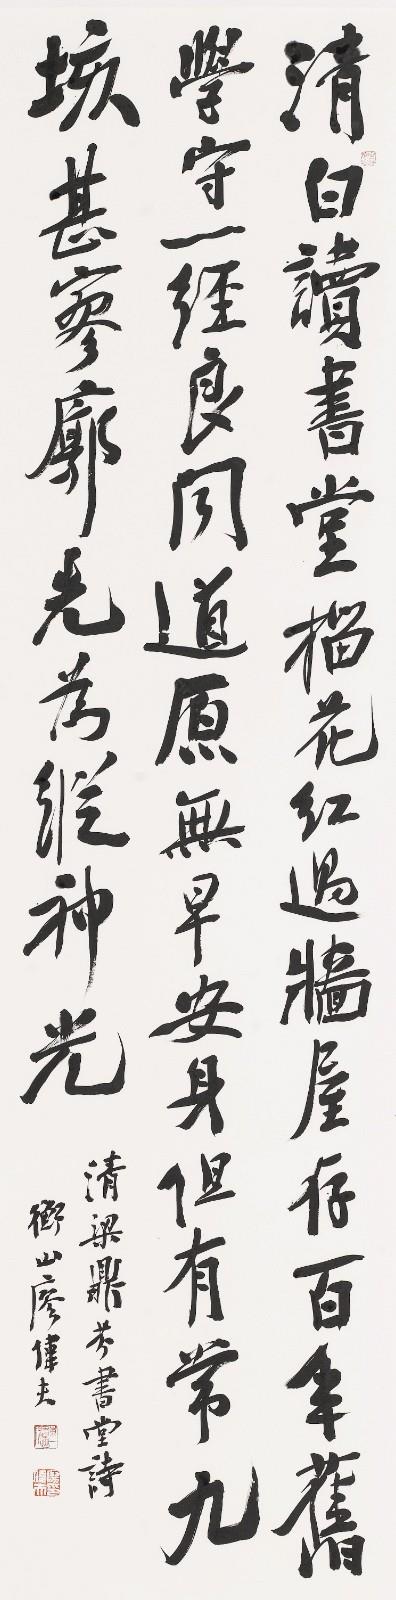 清白讀書堂榴花紅過牆屋存百年舊
學守一經良聞道原無早安身但有常九
垓甚寥廓為縱神光
清梁鼎芬書堂詩
衡山廖偉夫